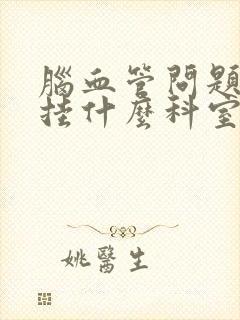 腦血管問題
挂什麼科室
姚醫生